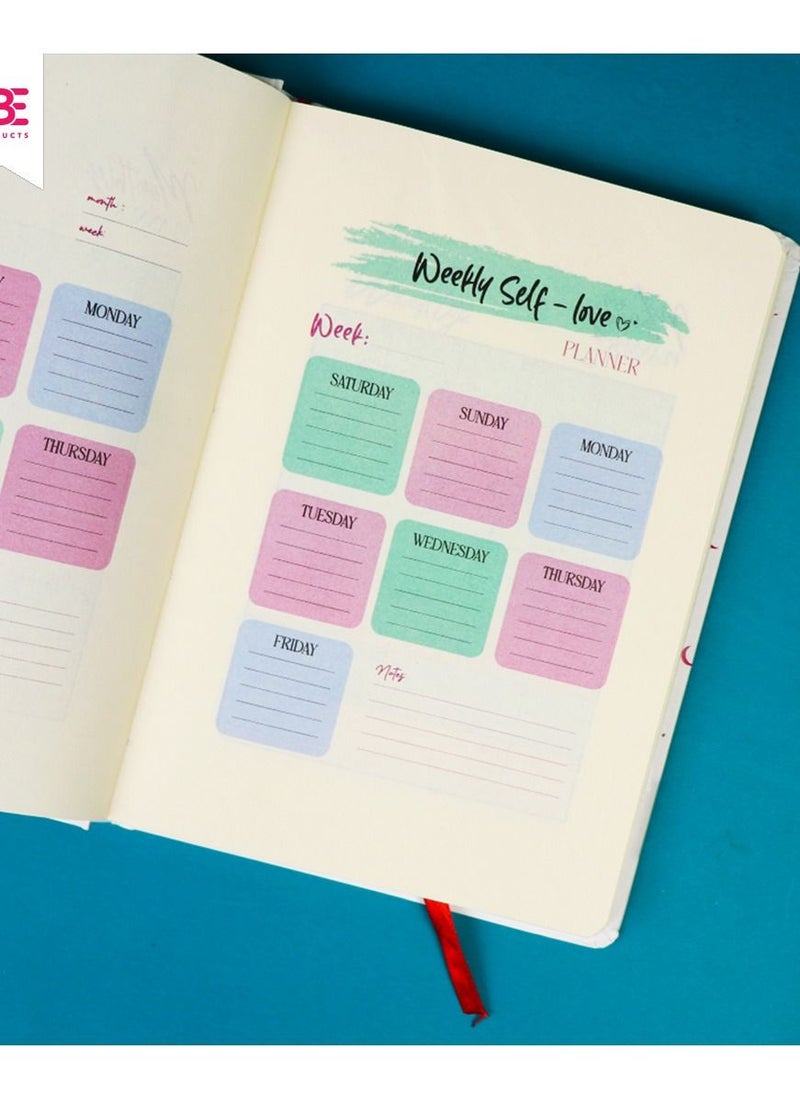 BE
UCTS
month :
week:
MONDAY
THURSDAY
Weekly Self - love
PLANNER
Week:
SATURDAY
SUNDAY
MONDAY
TUESDAY
WEDNESDAY
THURSDAY
FRIDAY
Notes